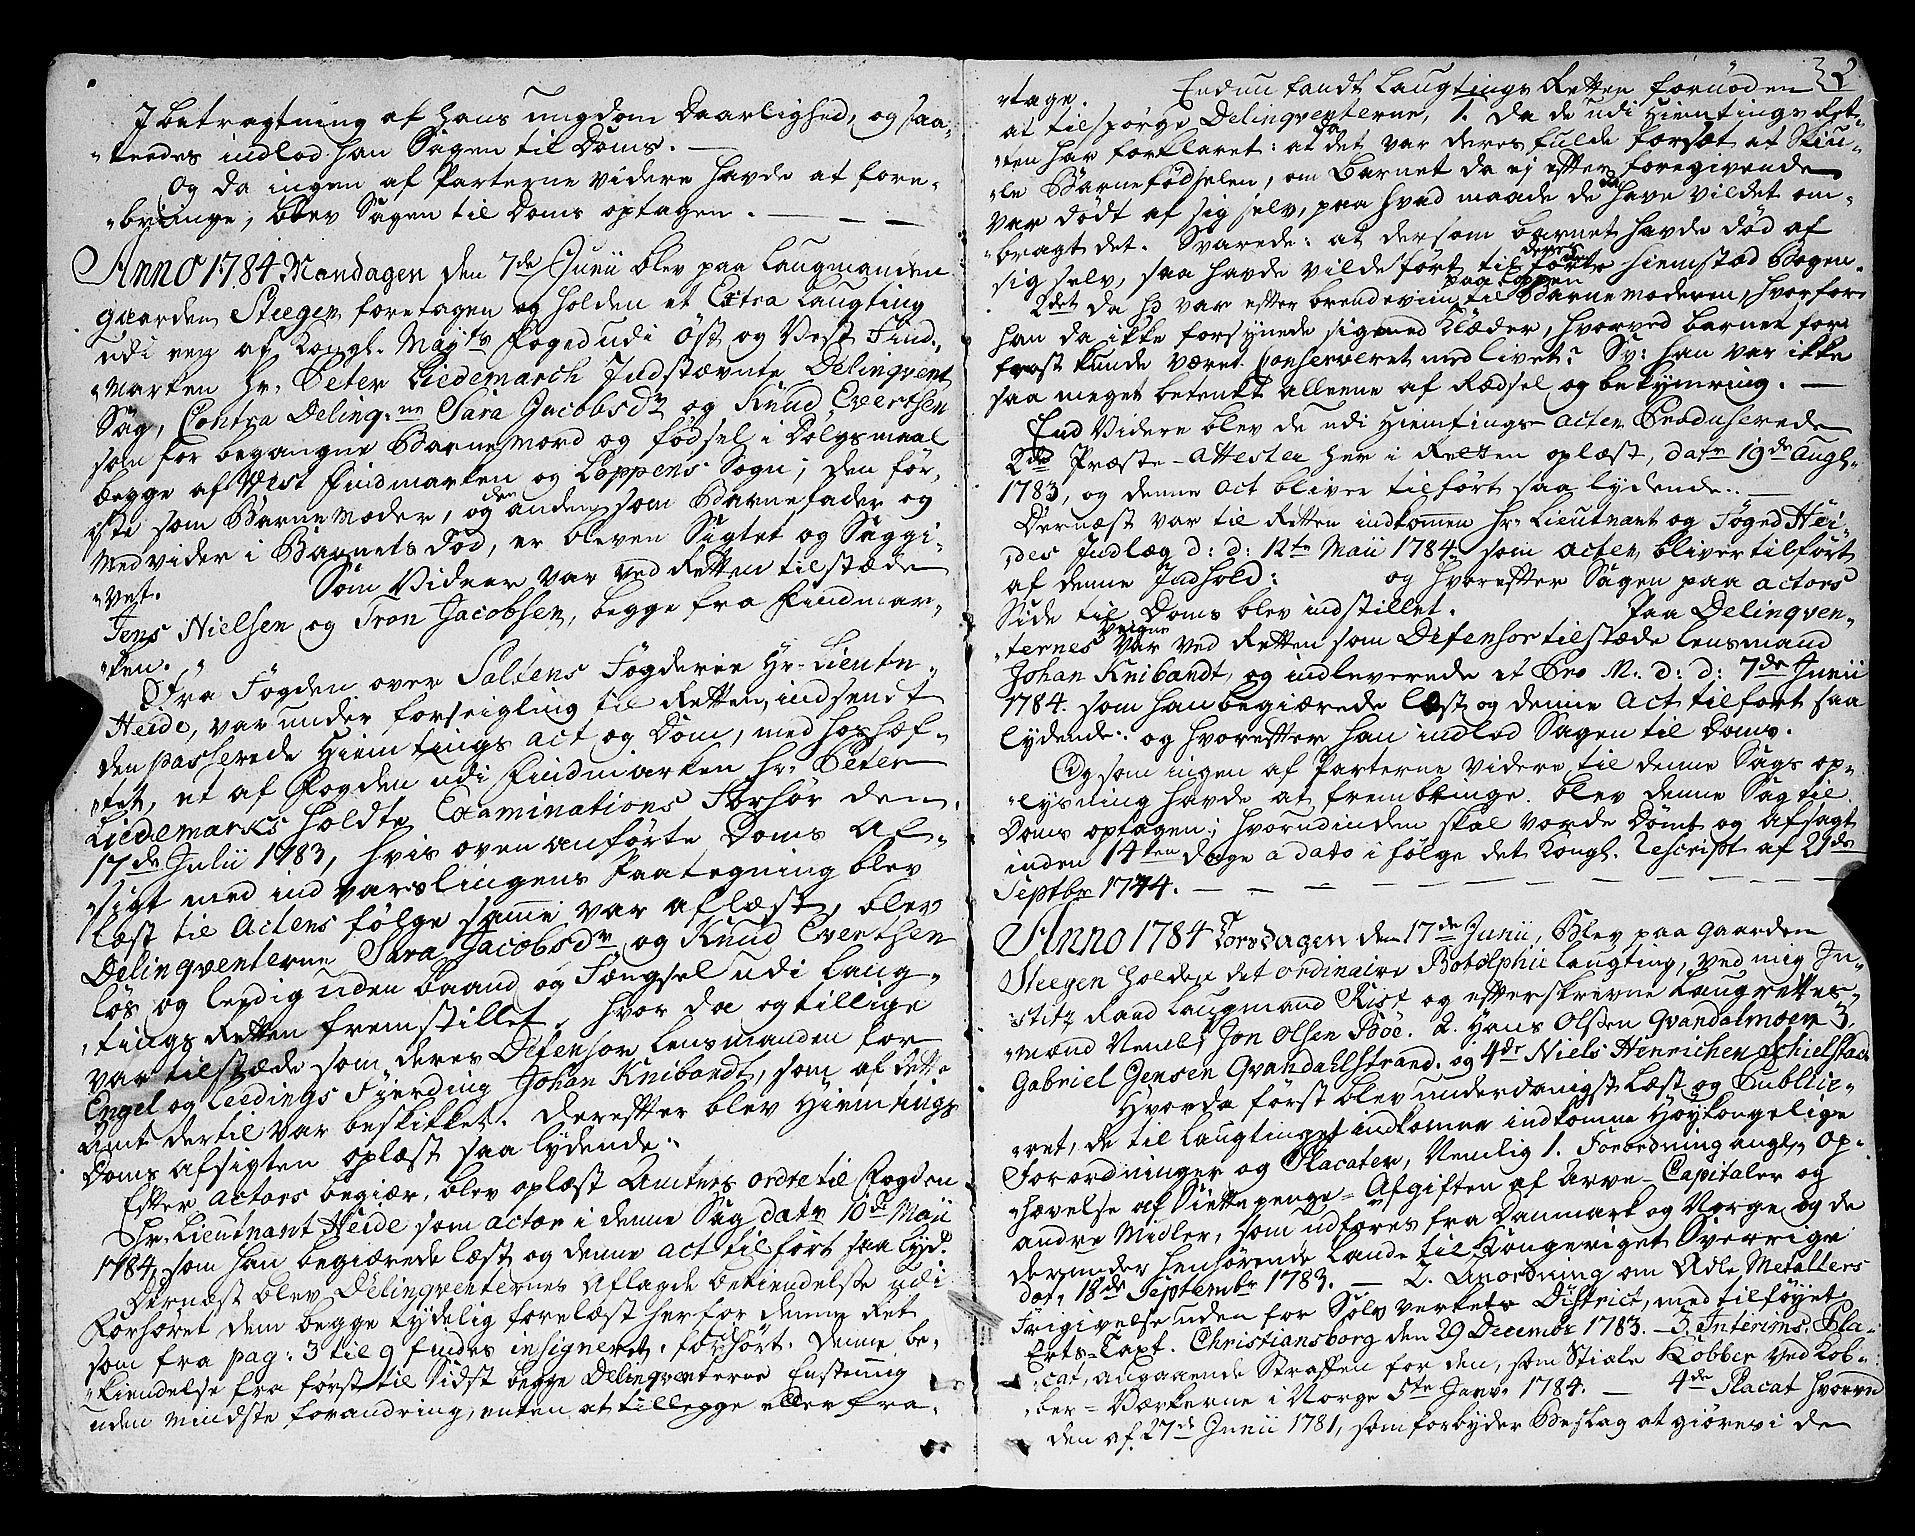 I betragtning af hans ungdom Daarlighed, og saa-
ledes indlod han Sagen til Doms. —
Og da ingen af Parterne videre havde at fore-
bringe, blev Sagen til Doms optagen. — — —
Anno 1784 Mandagen den 7de Junii blev paa Laugmanden
gaarden Steegen foretagen og holden et Extra Laugting
udi een af Kongl. Mayts Foged udi Öst og Vest Find-
marken Hr. Peter Liedemarch Indstævnte Delinqvent
Sag, Contra Delinq:ne Sara Jacobsdr og Knud Evertsen
som for begangne Barnemord og födsel i Dölgsmaal
begge af Vest Findmarken og Loppens Sogn; den för-
ste som Barnemoder, og den anden som Barnefader og
Medvider i Barnets Död, er bleven Sigtet og Saggi-
vet. Som Vidner var ved Retten tilstæde
Jens Nielsen og Tron Jacobsen, begge fra Findmar-
ken.
Fra Fogden over Saltens Fögderie Hr. Lieutn.
Heide, var under forseigling til Retten indsendt
den passerede Hiemtings act og Dom, med hoshæf-
tet, et af Fogden udi Findmarken Hr. Peter
Liedemarks holdte Examinations Forhör den
17de Julii 1783, hvis ovenanförte Doms Af-
sigt med ind varslingens Paategning blev
læst til Actens fölge samme var aflæst, blev
Delinqventerne Sara Jacobsdr og Knud Evertsen
lös og ledig uden baand og Fængsel udi Laug-
tings Retten fremstillet, hvor da og tillige
var tilstæde som deres Defensor Lensmanden for
Engel og Leedings Fierding Johan Knibandt, som af dette
Amt dertil var beskikket. Derefter blev Hiemtings
Doms afsigten oplæst saa lydende:
Efter actors begiær, blev oplæst Amtets ordre til Fogden
Hr. Lieutnant Heide som actor i denne Sag datr 10de Maii
1784, som han begiærede læst og denne act tilfört saa lyd:
Dernæst blev Delinqventernes aflagde bekiendelse udi
Forhöret dem begge tydelig forelæst her for denne Ret
som fra pag: 3 til 9 findes insigneret forhört. Denne be-
kiendelse fra först til Sidst begge Delinqventerne Enstemmig
uden mindste forandring, enten at tillegge eller fra-
32
tage. Endnu fandt Laugtings Retten fornöden
at tilspörge Delinqventerne, 1. Da de udi Hiemtings Ret-
ten har forklaret: at det var deres fulde forsæt at Skiu-
le Barnefödselen, om Barnet da ej efter foregivende
var dödt af sig selv, paa hvad maade de da have vildet om-
bragt det. Svarede: at dersom barnet havde död af
sig selv, saa havde vilde fört til deres hiemstæd Bogen.
2det da han var efter brendeviin til Barnemoderen, hvorfor
han da ikke forsynede sig med Klæder, hvorved barnet for
frost kunde været Conserveret med livet? Sv: han var ikke
saa meget betenkt alleene af Rædsel og bekymring. —
End Videre blev de udi Hiemtings-acten Producerede
2de Præste-Attester her i Retten oplæst, datr 19de Augt.
1783, og denne act bliver tilfört saa lydende: —
Dernæst var til Retten indkomen Hr. Lieutnant og Foged Hei-
des Indlæg d: d: 12te Maii 1784, som acten bliver tilfört
af denne Indhold: og hvorefter Sagen paa actors
Side til Doms blev indstillet. Paa Delinqven-
ternes veigne var ved Retten som Defensor tilstæde Lensmand
Johan Knibandt, og indleverede et Pro M. d: d: 7de Junii
1784. som han begiærede læst og denne Act tilfört saa
lydende: og hvorefter han indlod Sagen til Doms.
Og som ingen af Parterne videre til denne Sags op-
lysning havde at frembringe. blev denne Sag til
Doms optagen; hvorudinden skal vorde Dömt og Afsagt
inden 14ten dage a dato i fölge det Kongl. Rescript af 21de
Septbr 1744. — — — — — —
Anno 1784 Torsdagen den 17de Junii, Blev paa gaarden
Steegen holden det ordinaire Botolphii Laugting, ved mig Ju-
stitz Raad Laugmand Rist og efterskrevne Laugrettes-
mænd Neml. Jon Olsen Böe. 2. Hans Olsen Qvandalmoen 3
Gabriel Jensen Qvandahlstrand. og 4de Niels Henrichen Skielstad
Hvorda först blev underdanigst Læst og Publice-
ret, de til Laugtinget indkomne indkomne Höykongelige
Forordninger og Placater, Nemlig 1. Forordning angl. Op-
hævelse af Siettepenge-Afgiften af Arve-Capitaler og
andre Midler, som udföres fra Danmark og Norge og de
derunder henhörende Lande til Kongeriget Sverrige
dat. 18de Septembr 1783. — 2. Anordning om Ædle Metallers
Frigivelse uden for Sölv verkets District, med tilföyet
Erts-Taxt. Christiansborg den 29 Decembr 1783. — 3. Interims Pla-
cat, angaaende Straffen for den, som Stiæle Kobber ved Kob-
ber-Værkerne i Norge 5te Janv. 1784. — 4de Placat hvorve
den af 27de Junii 1781, som forbyder Beslag at giöres i de